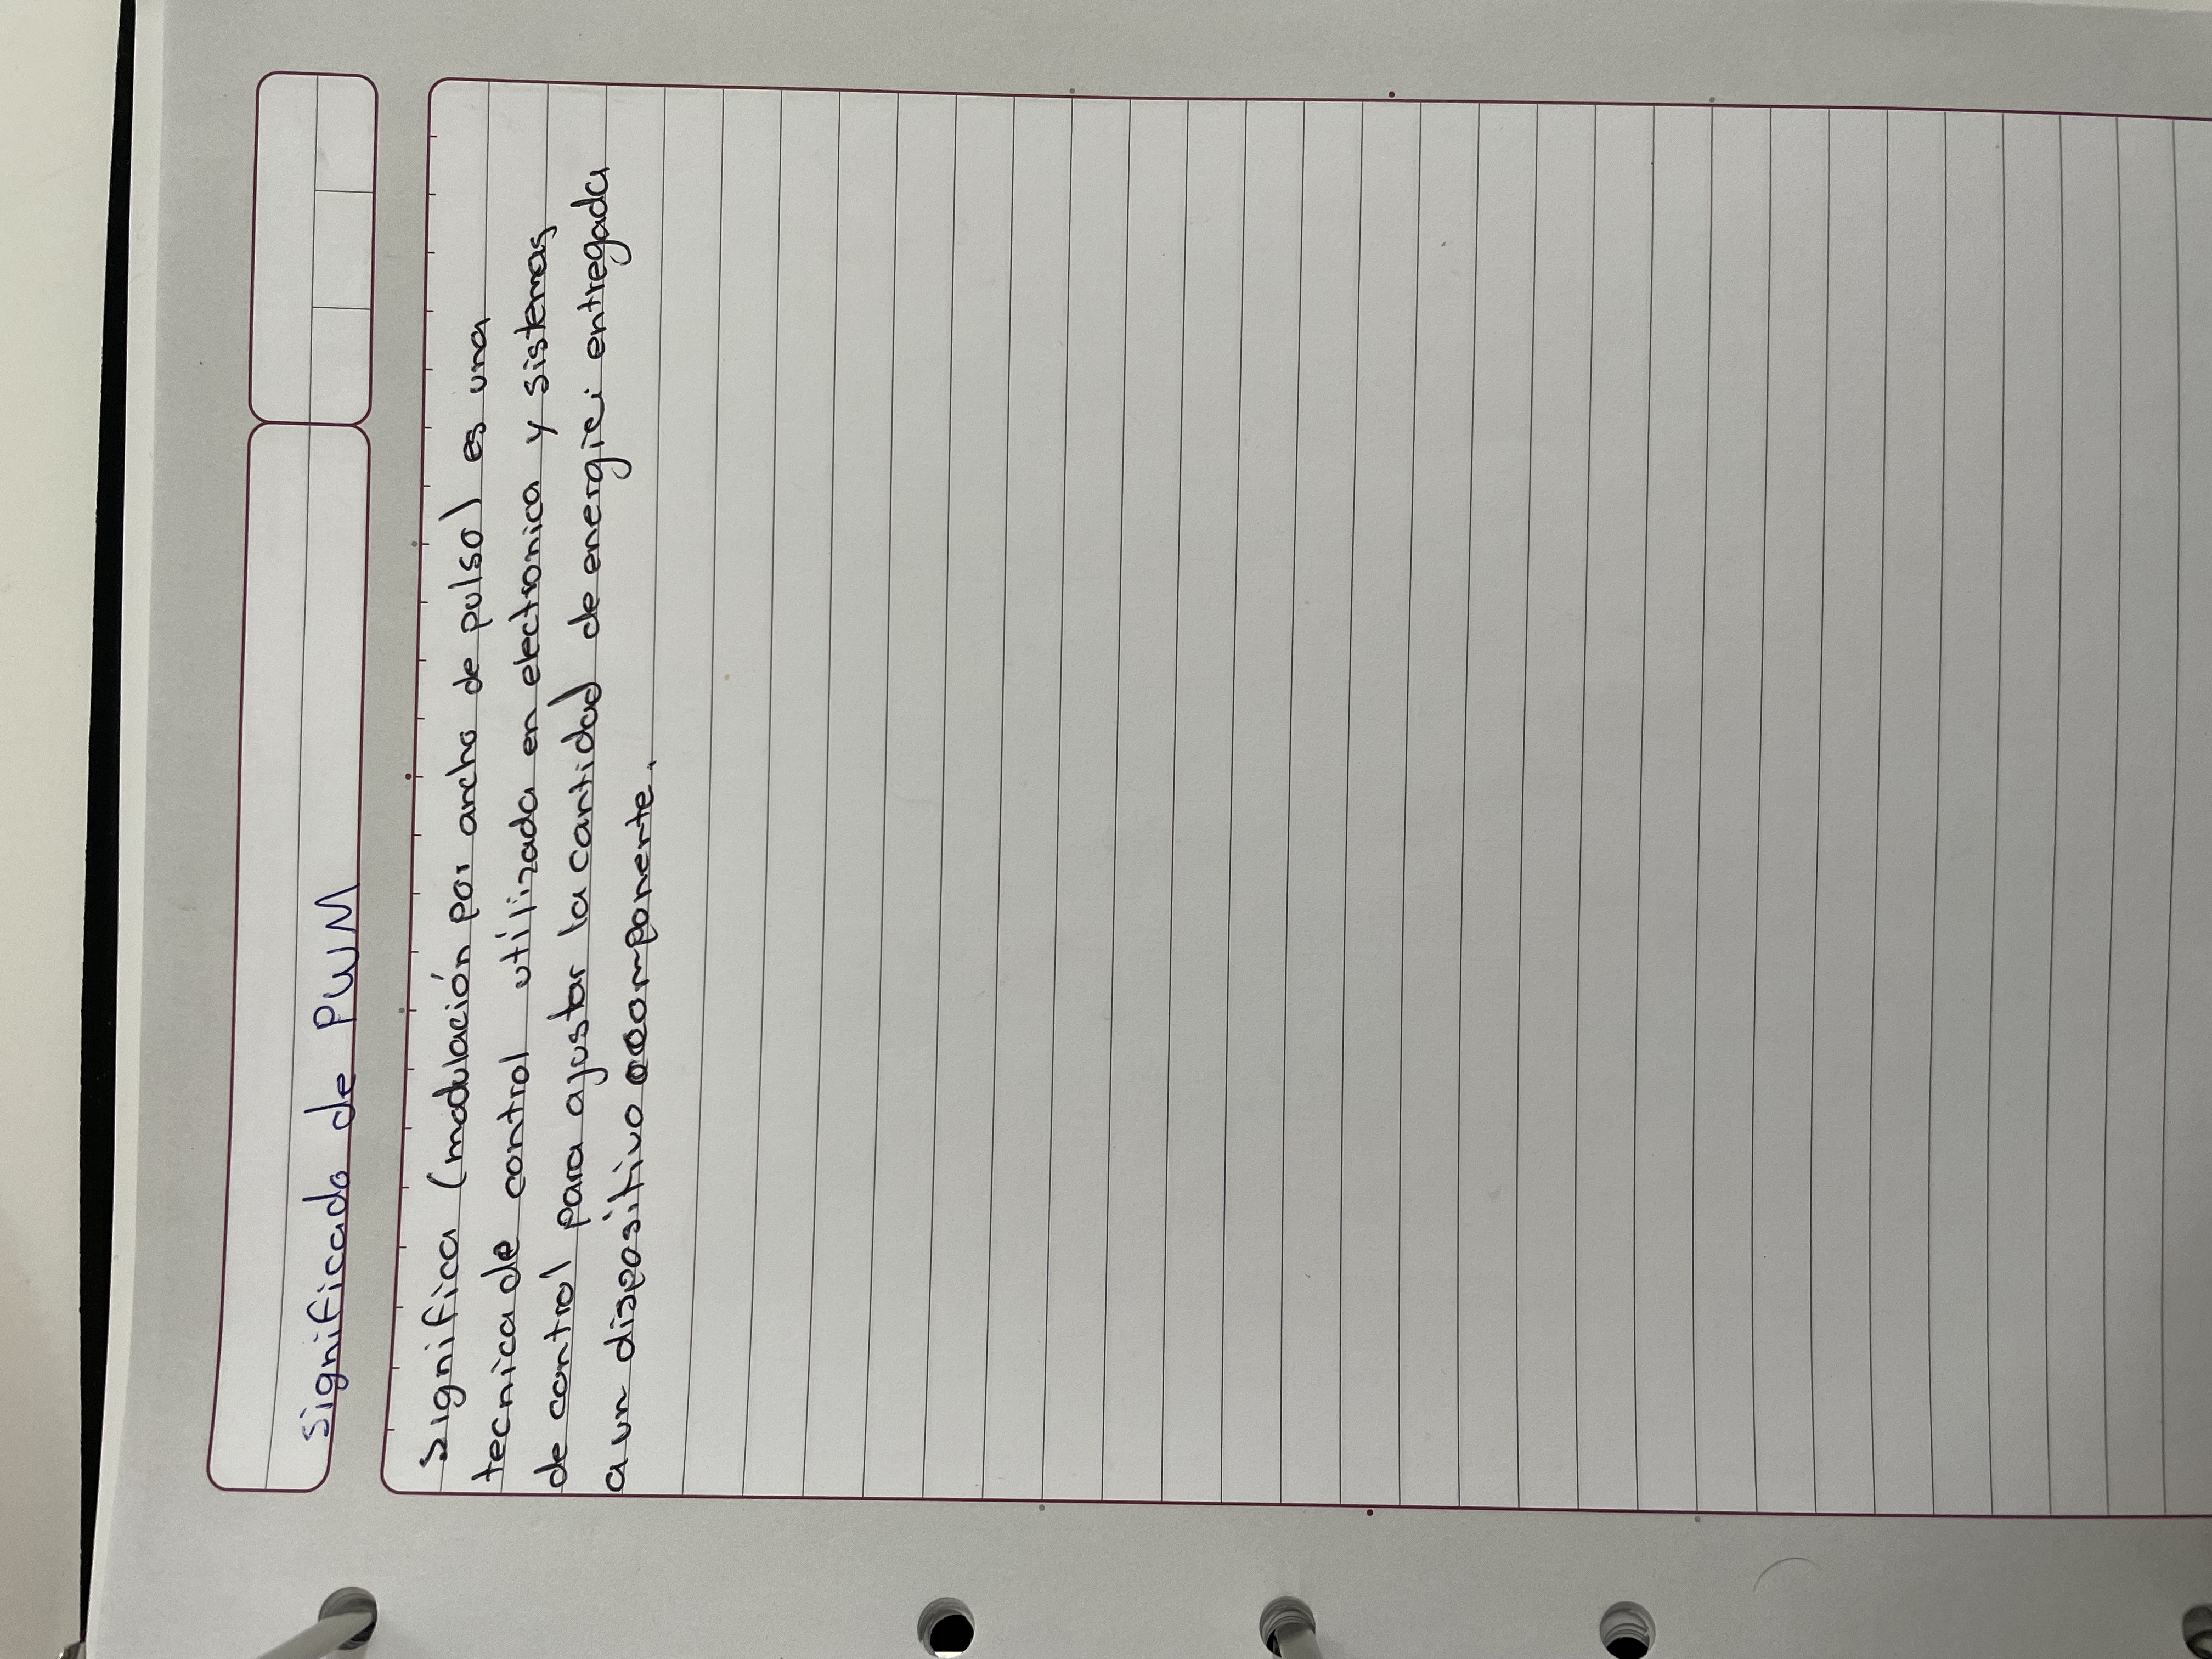 Significado de PWM
Significa (modulación por ancho de pulso) es una
tecnica de control utilizada en electronica y sistemas
de control para ajustar la cantidad de energia entregada
a un dispositivo o componente.